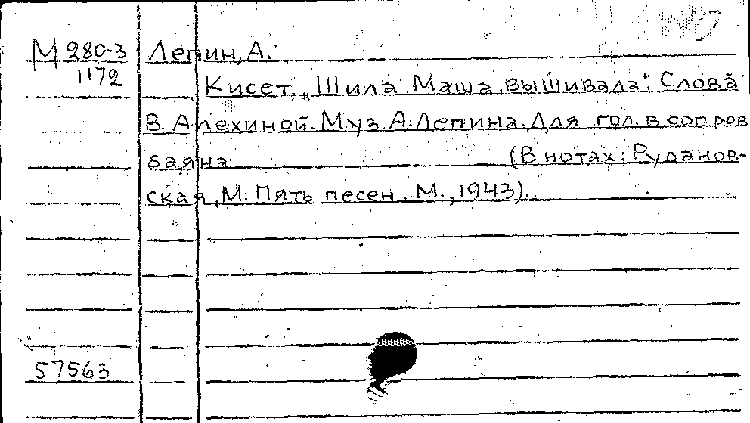 М 280-3 Лепин, А.
1172
Кисет. „Шила Маша, вышивала". Слова
В. Алехиной. Муз. А. Лепина. Для гол. в сопров
баяна (В нотах: Рудинов-
ская, М. Пять песен. М., 1943).
57563